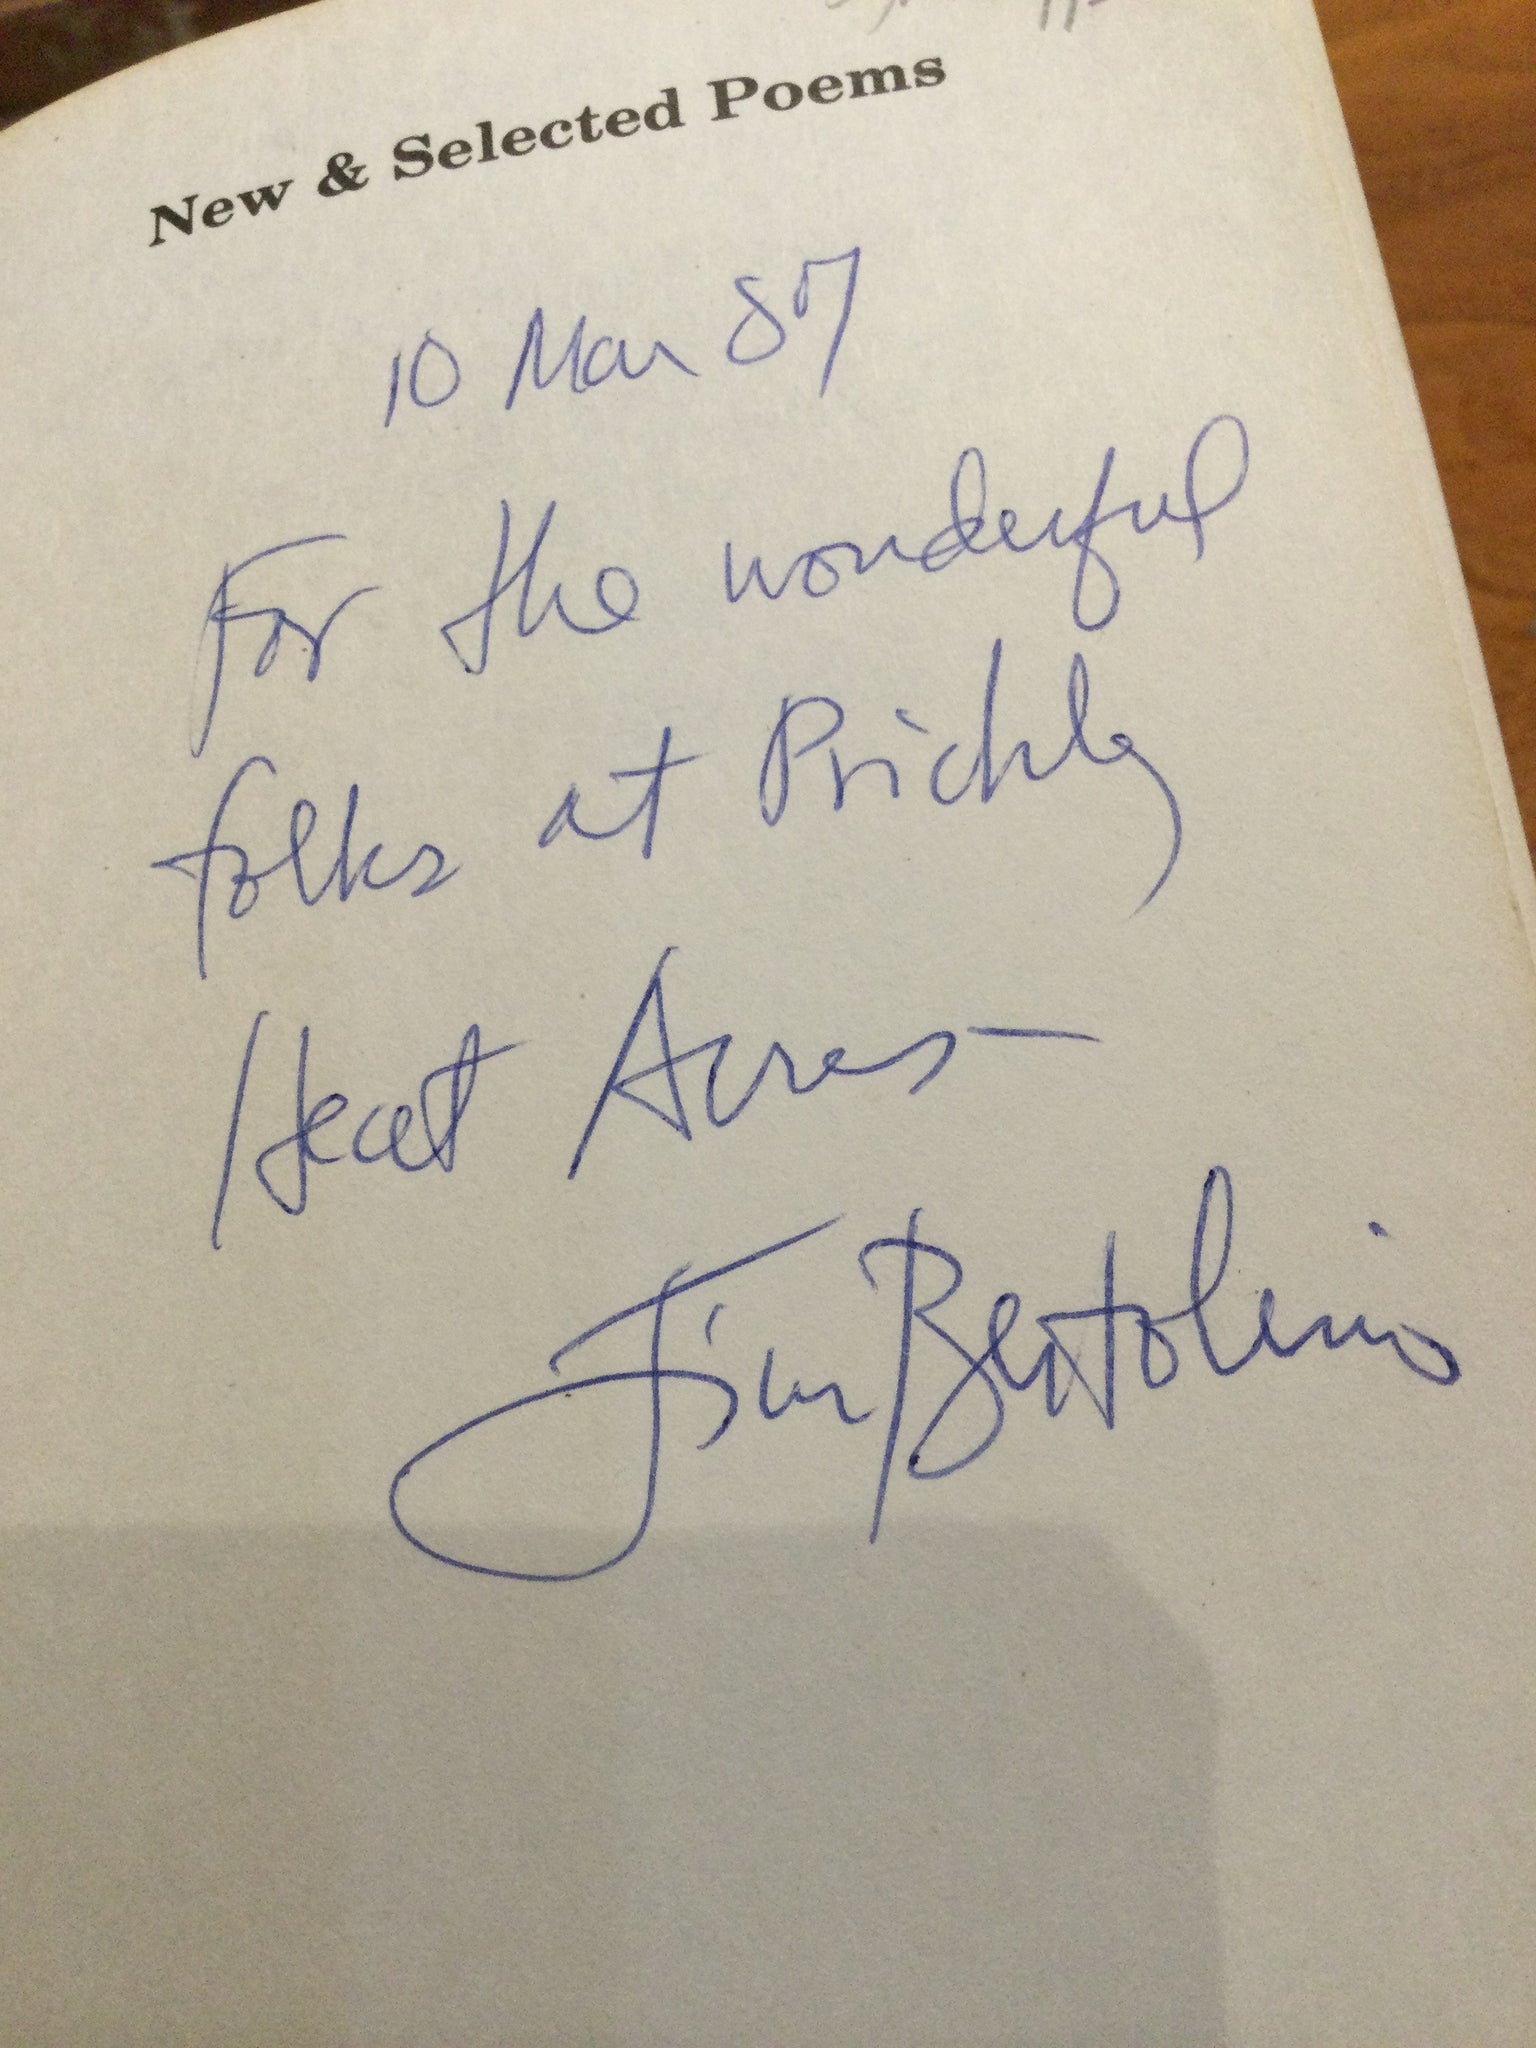 New & Selected Poems
10 Mar 87
For the wonderful
folks at Prickly
Heat Acres—
Jim Bertolino